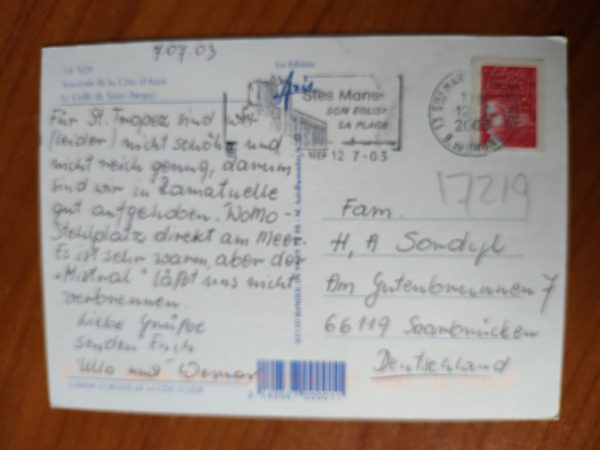 7.07.03
Souvenir de la Côte d'Azur
Le Golfe de Saint-Tropez
Für St. Tropez sind wir
(leider) nicht schön und
nicht reich genug, darum
sind wir in Ramatuelle
gut aufgehoben. WoMo-
Stehlplatz direkt am Meer.
Es ist sehr warm, aber der
"Mistral" läßt uns nicht
verbrennen.
Liebe Grüße
senden Euch
Ulla und Werner
Stes Maries
SON EGLISE
SA PLAGE
12 7-03
17219
Fam.
H, A Sondyl
Am Gutenbrunnen 7
66119 Saarbrücken
Deutschland